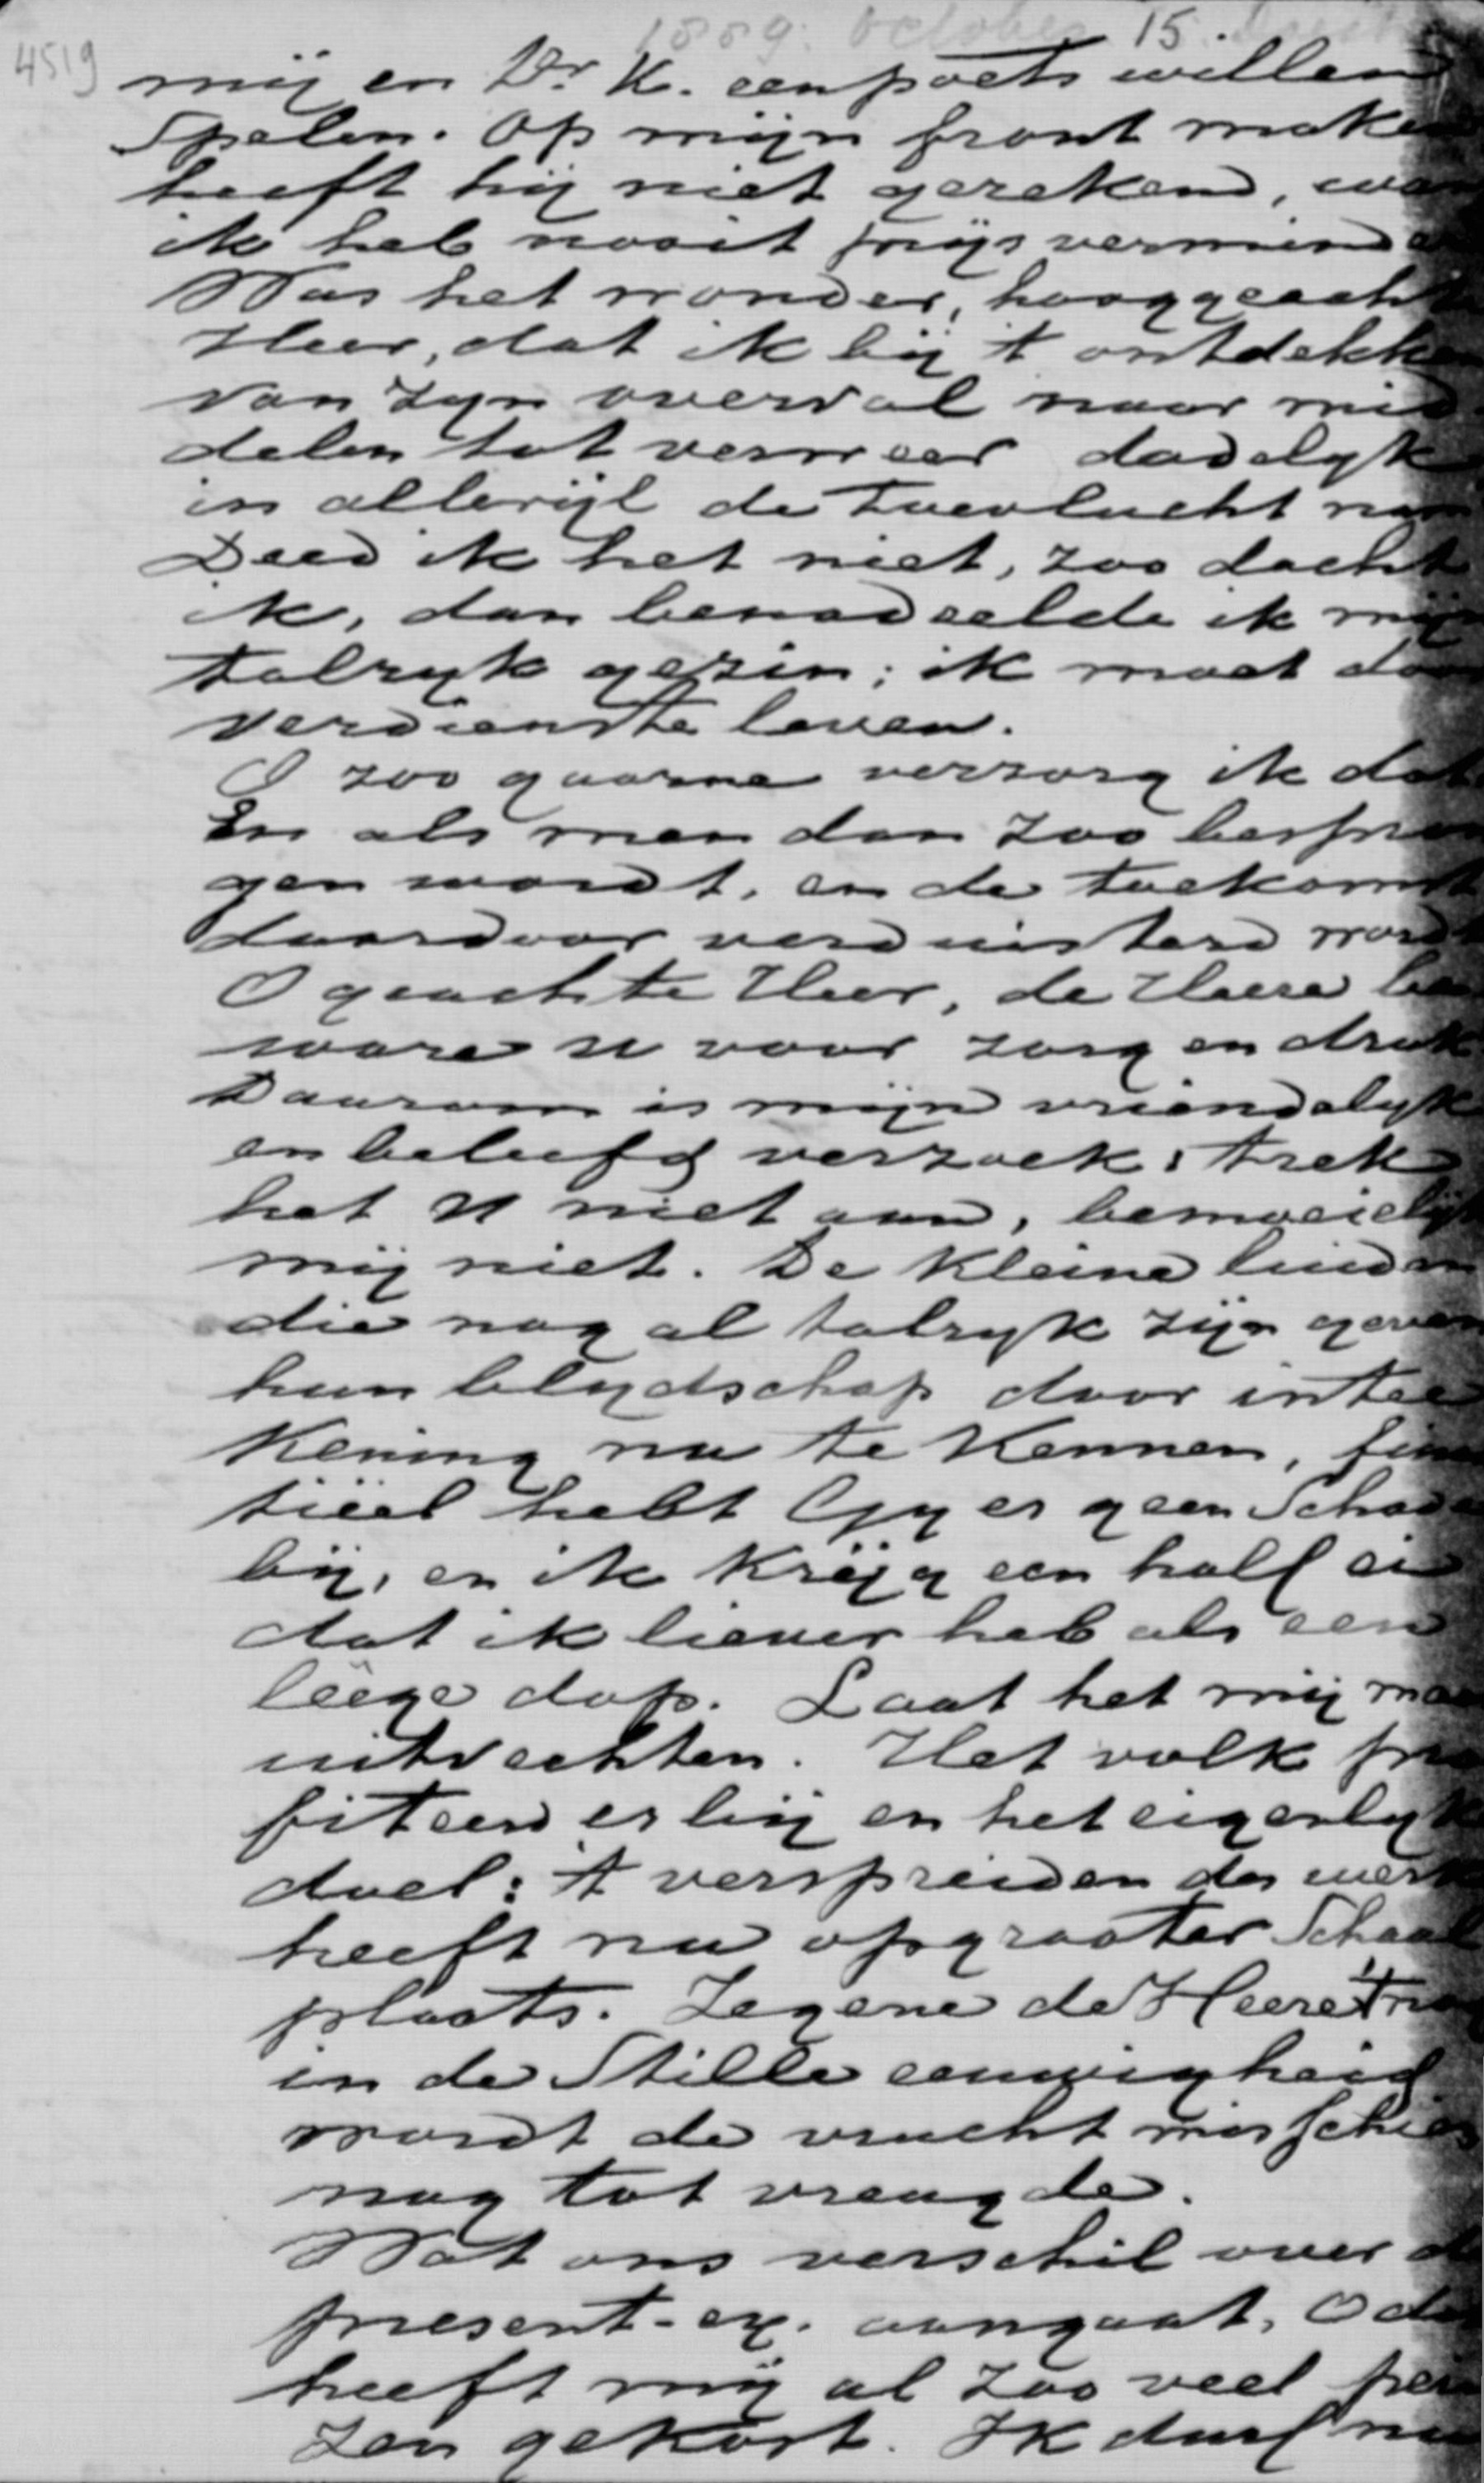 1889. October 15.
4519
mij en Dr. K. een poets willen
Spelen. Op mijn front maken
heeft hij niet gerekend, wan
ik heb nooit prijsvermind
Was het wonder, hooggeacht
Heer, dat ik bij 't ontdekke
van zyn overval naar mid
delen tot verweer dadelyk
in allerijl de toevlucht nam
Deed ik het niet, zoo dacht
ik, dan benadeelde ik mijn
talryk gezin; ik moet van
verdienste leven.
O zoo gaarne verzorg ik dat
En als men dan zoo bespron
gen wordt, en de toekomst
daardoor verduisterd word
O geachte Heer, de Heere be
ware u voor zorg en druk
Daarom is mijn vriendelyk
en beleefd verzoek: trek
het U niet aan, bemoeielijk
mij niet. De Kleine luiden
die nog al talryk zijn geven
hun blydschap door intee
Kening nu te Kennen, finan
tiëel hebt Gy er geen Schade
bij, en ik Krijg een half ei
dat ik liever heb als een
leêge dop. Laat het mij maar
uitvechten. Het volk pro
fiteerd er bij en het eigenlyk
doel: 't verspreiden des werk
heeft nu op grooter Schaal
plaats. Zegene de Heere 't nog
in de Stille eeuwigheid
wordt de vrucht misschien
nog tot vreugde.
Wat ons verschil over de
present-ex. aangaat, O dat
heeft mij al zoo veel pein
zen gekost. Ik durf